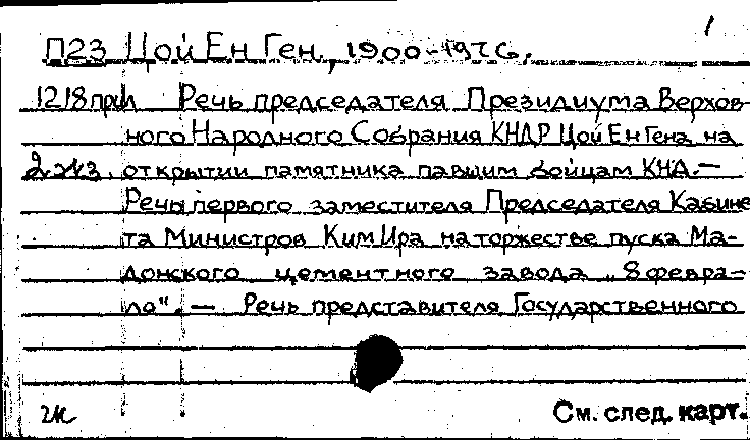 1
П23 Цой Ен Ген., 1900-1976.
1218прил Речь председателя Президиума Верхов-
ного Народного Собрания КНДР Цой Ен Гена на
2 экз. открытии памятника павшим бойцам КНА.—
Речь первого заместителя Председателя Кабине
та Министров Ким Ира на торжестве пуска Ма-
донского цементного завода „8 февра-
ля". — Речь представителя Государственного
см. след. карт.